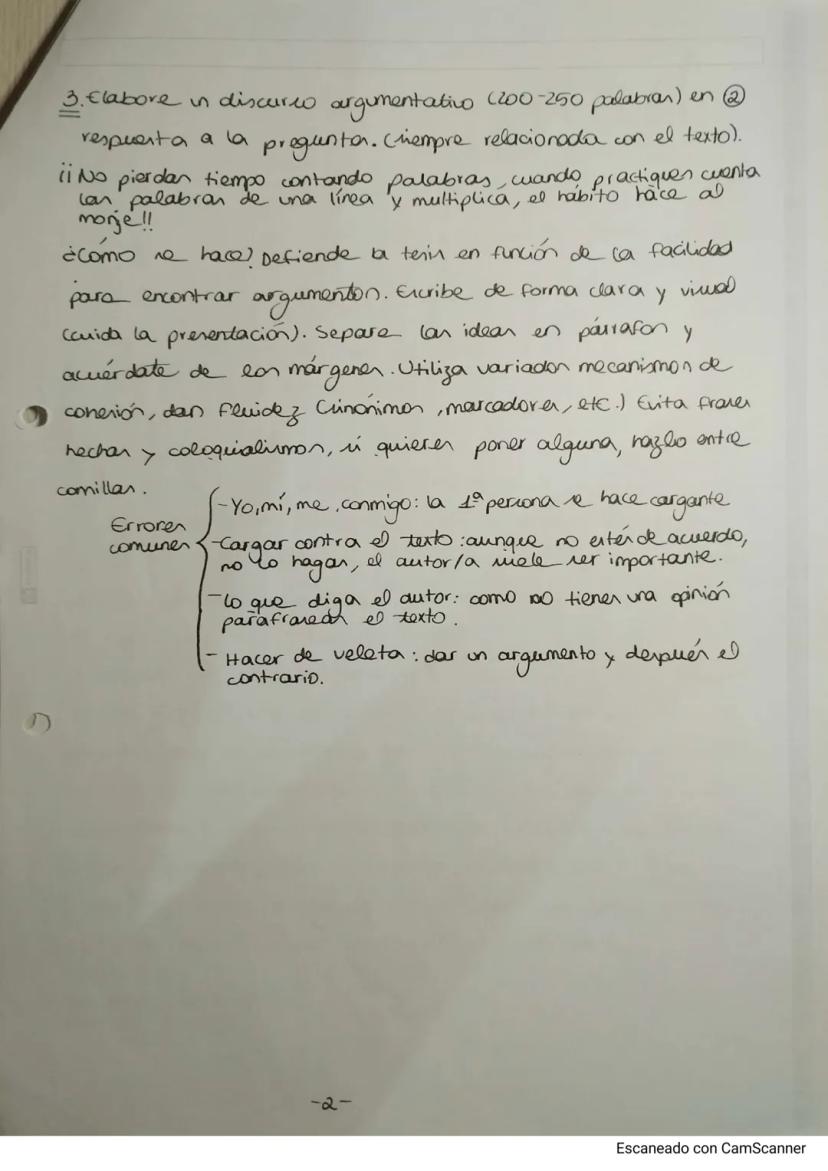 3. Elabore un discurso argumentativo (200-250 palabras) en ②
respuesta a la pregunta. (siempre relacionada con el texto).
¡¡No pierdas tiempo contando palabras, cuando practiques cuenta
las palabras de una línea y multiplica, el hábito hace al
monje!!
¿Cómo se hace? Defiende la tesis en función de la facilidad
para encontrar argumentos. Escribe de forma clara y visual
(cuida la presentación). Separa las ideas en párrafos y
acuérdate de los márgenes. Utiliza variados mecanismos de
cohesión, dan fluidez (sinónimos, marcadores, etc.) Evita frases
hechas y coloquialismos, si quieres poner alguna, hazlo entre
comillas.
Errores comunes
- Yo, mí, me, conmigo: la 1ª persona se hace cargante
- Cargar contra el texto: aunque no estés de acuerdo,
no lo hagas, el autor/a suele ser importante.
- Lo que diga el autor: como no tienes una opinión
parafraseas el texto.
- Hacer de veleta: dar un argumento y después el
contrario.
-2-
Escaneado con CamScanner